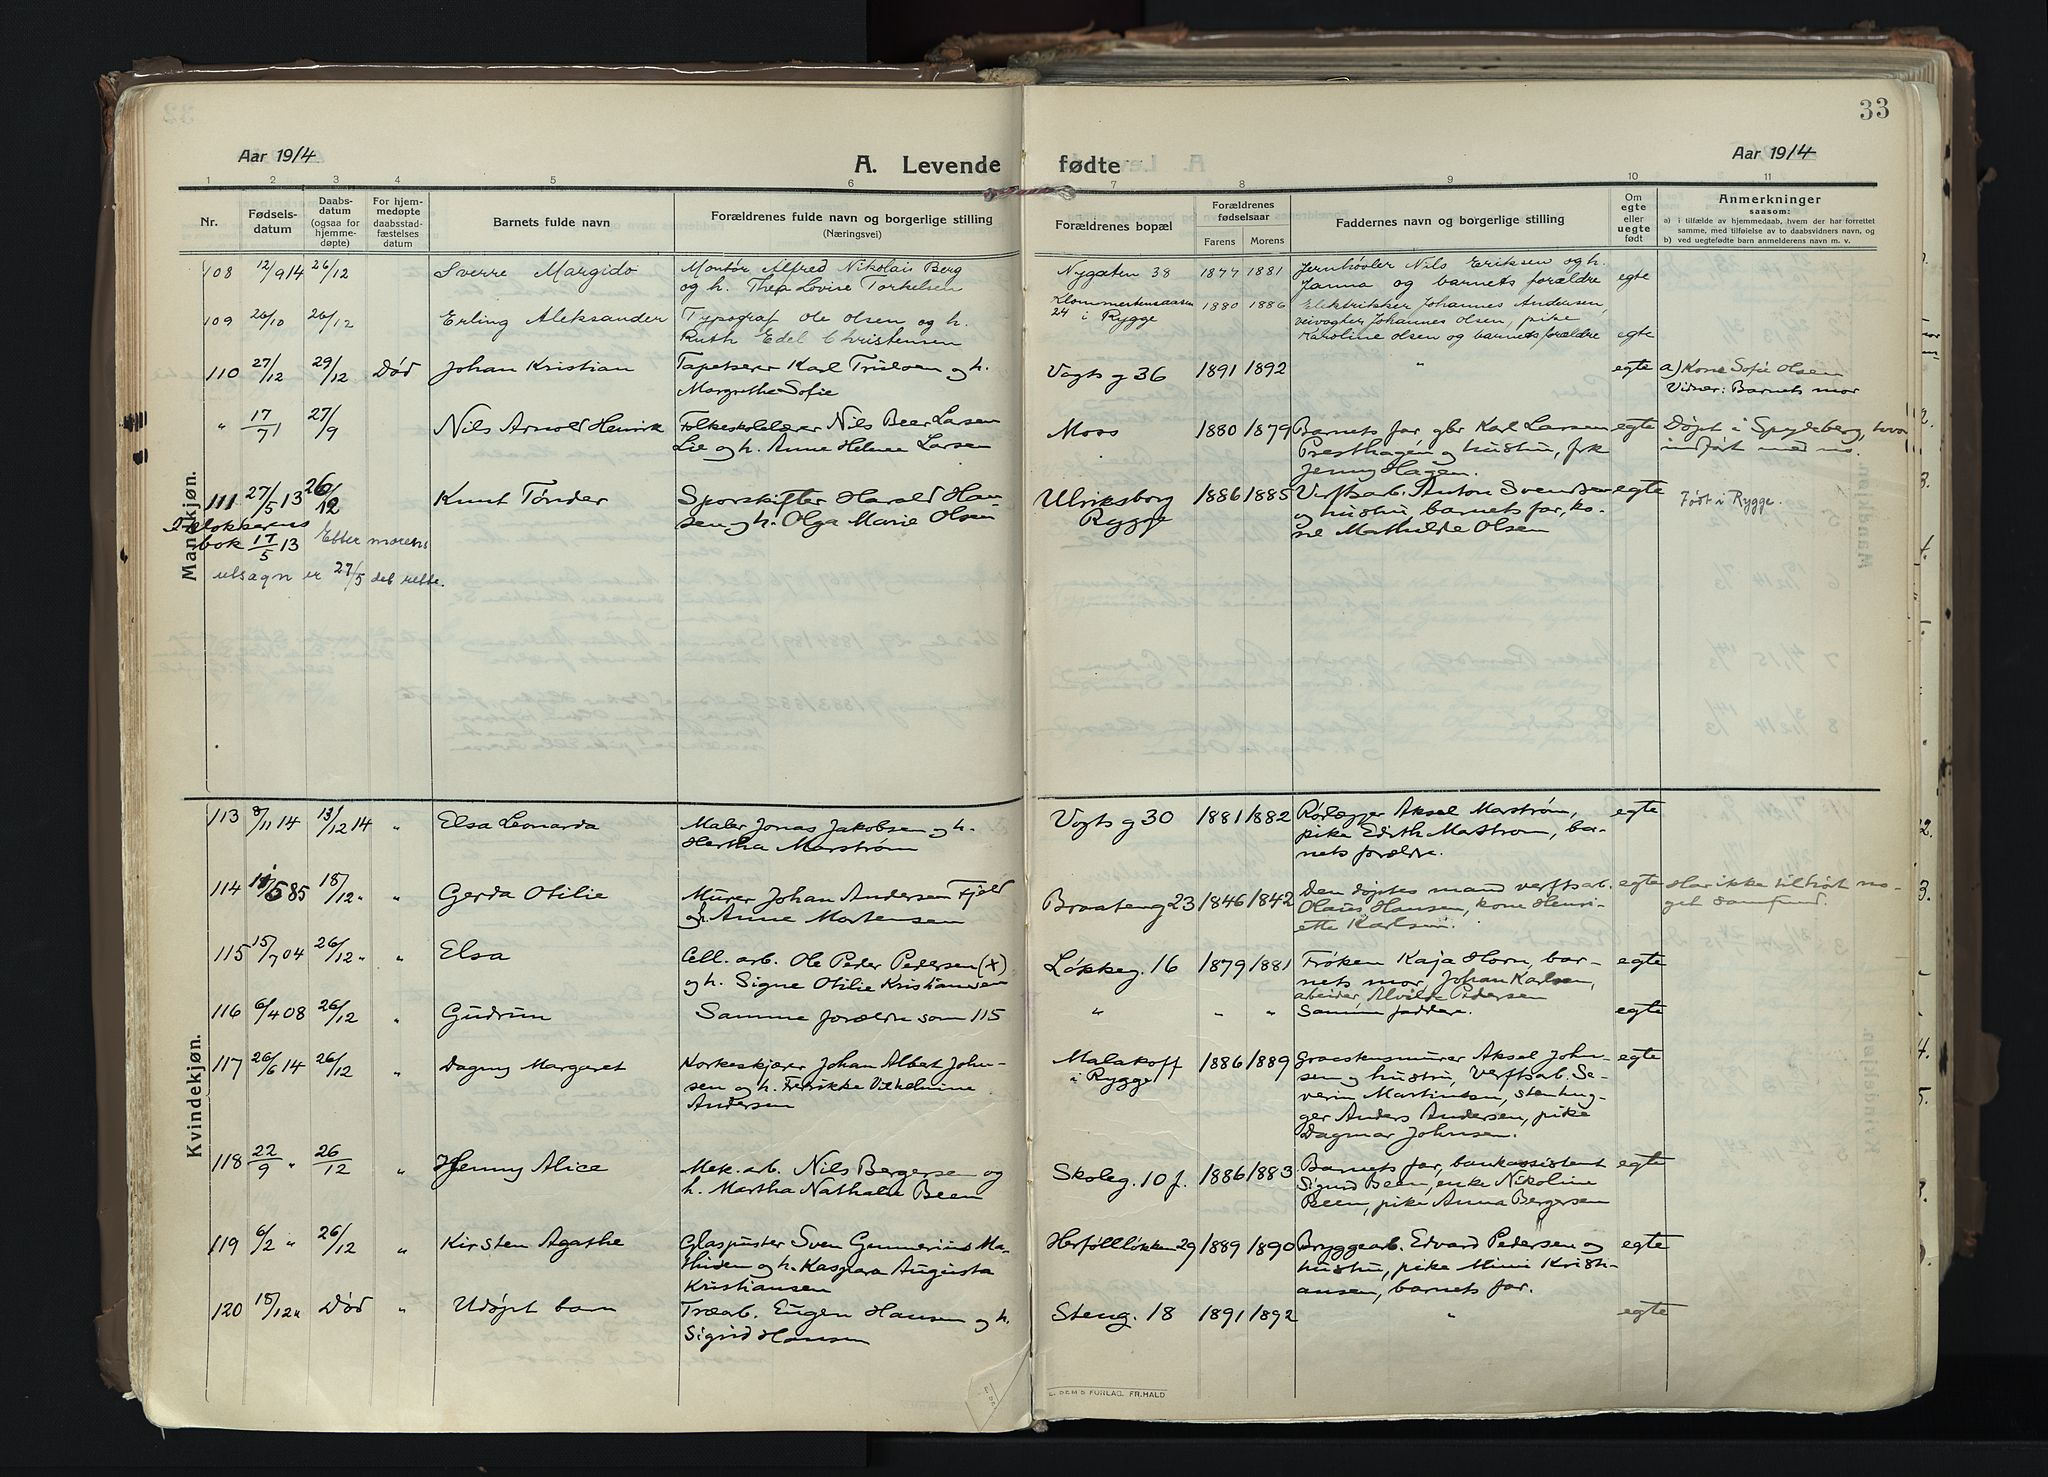 33
Aar 1914
A. Levende fødte
Aar 1914
1 2 3 4 5 6 7 8 9 10 11
Nr.
Fødsels-
datum
Daabs-
datum
(ogsaa for
hjemme-
døpte)
For hjem-
medøpte
daabsstad-
fæstelses
datum
Barnets fulde navn
Forældrenes fulde navn og borgerlige stilling
(Næringsvei)
Forældrenes bopæl
Forældrenes
fødselsaar
Farens Morens
Faddernes navn og borgerlige stilling
Om
egte
eller
uegte
født
Anmerkninger
saasom:
a) i tilfælde av hjemmedaab, hvem der har forrettet
samme, med tilføielse av to daabsvidners navn, og
b) ved uegtefødte barn anmelderens navn m. v.
Mandkjøn.
108 12/9 14 26/12 Sverre Margido Montør Alfred Nikolais Berg Nygaten 38 1877 1881 Jernhøvler Nils Eriksen og h. egte
og h. Thea Lovise Torkelsen Janna og barnets forældre
109 26/10 26/12 Erling Aleksander Typograf Ole Olsen og h. 24 i Rygge 1880 1886 Elektrikker Johannes Andersen,
Ruth Edel Christensen veivogter Johannes Olsen, pike
Karoline Olsen og barnets forældre egte
110 27/12 29/12 Død Johan Kristian Tapetserer Karl og h. Vogts g 36 1891 1892 " egte a) Kone Sofie Olsen
Margrethe Sofie Vidner: Barnets mor
" 17/7 27/9 Nils Arnold Henrik Folkeskolelærer Nils Beer Larsen Moss 1880 1879 Barnets far, gbr Karl Larsen egte Døpt i Spydeberg,
Lie og h. Anne Helene Larsen Presthagen og hustru, frk indført med no.
Jenny Hagen.
111 27/5 13 26/12 Knut Tønder Sporskifter Harald Han- Ulriksborg 1886 1885 Verftsarb. Anton Svendsen egte Født i Rygge.
sen og h. Olga Marie Olsen Rygge og hustru, barnets far, ko-
ne Mathilde Olsen
bok 17/5 13 Efter morens
utsagn er 27/5 det rette.
Kvindekjøn.
113 8/11 14 13/12 14 " Elsa Leonarda Maler Jonas Jakobsen og h. Vogts g 30 1881 1882 Aksel Marstrøm, egte
Hertha Marstrøm pike Edith Mastrom, bar-
nets forældre.
114 5 85 18/12 " " Gerda Otilie Murer Johan Andersen Fjeld Braateng 23 1846 1842 Den døptes mand verftsarb. egte Har ikke tilhørt no-
og h. Anne Mortensen Olaus Hansen, kone Henri- get samfund.
ette Karlsen.
115 15/7 04 26/12 " " Elsa Cell. arb. Ole Peder Pedersen (+) Løkkeg. 16 1879 1881 Frøken Kaja Horn, bar- egte
og h. Signe Otilie Kristiansen nets mor, Johan Karlsen,
arbeider, Alvilde Pedersen
116 6/4 08 26/12 " Gudrun Samme forældre som 115 " " " Samme faddere. egte
117 26/6 14 26/12 " Dagny Margaret Korkeskjærer Johan Albert John- Malakoff 1886 1889 Graastensmurer Aksel John- egte
sen og h. Fredrikke Vilhelmine i Rygge sen og hustru, Verftsarb. Se-
Andersen verin Martinsen, stenhug-
ger Anders Andersen, pike
Dagmar Johnsen.
118 22/9 " 26/12 " Jenny Alice Mek. arb. Nils Bergersen og Skoleg. 10 f. 1886 1883 Barnets far, bankassistent egte
h. Martha Nathalie Been Sigurd Been, enke Nikoline
Been, pike Anna Bergersen
119 6/2 " 26/12 " Kirsten Agathe Glaspuster Sven Gunnerius Ma- Herføllløkken 29 1889 1890 Bryggearb. Edvard Pedersen og egte
thisen og h. Kaspara Augusta hustru, pike Mimi Kristi-
Kristiansen ansen, barnets far.
120 18/12 " Død " Udøpt barn Træarb. Eugen Hansen og h. Steng. 18 1891 1892 " egte
Sigrid Hansen
FORLAG. FR.HALD